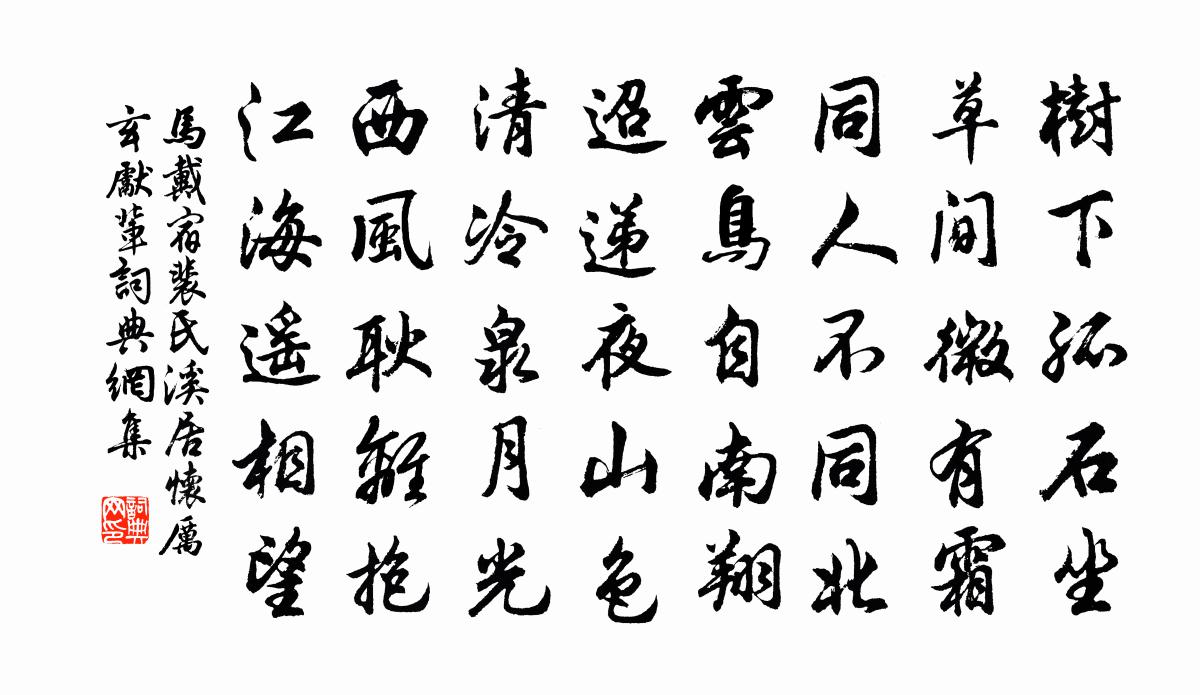 樹下孤石坐
草間微有霜
同人不同北
雲鳥自南翔
迢递夜山色
清冷泉月光
西風耿離抱
江海遥相望
馬戴宿裴氏溪居懷厲
玄獻輩詞典網集
詞典
网印